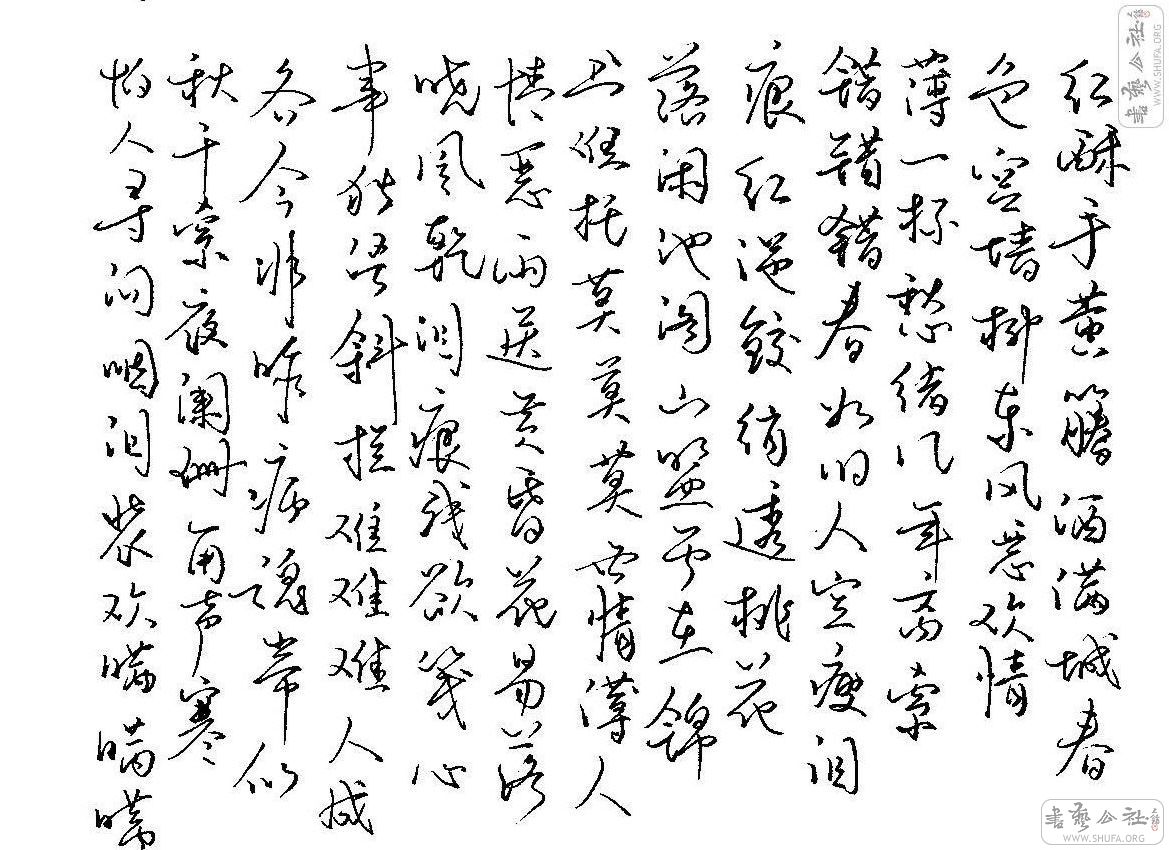 红酥手黄籘酒满城春
色宫墙柳东风恶欢情
薄一杯愁绪几年离索
错错错春如旧人空瘦泪
痕红浥鲛绡透桃花
落闲池阁山盟虽在锦
书难托莫莫莫世情薄人
情恶雨送黄昏花易落
晓风乾泪痕残欲笺心
事独语斜栏难难难人成
各今非昨病魂常似
秋千索夜阑珊角声寒
怕人寻问咽泪装欢瞒瞒瞒
書藝公社
WWW.SHUFA.ORG
書藝公社
WWW.SHUFA.ORG